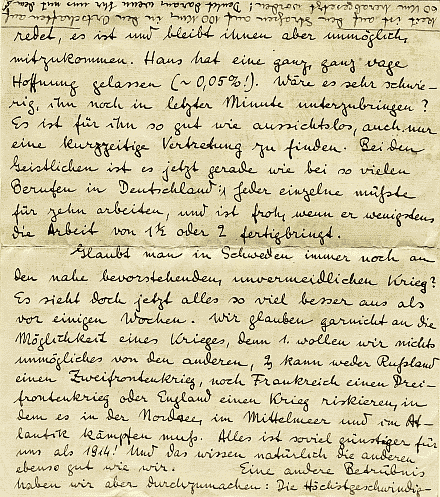 keit ist auf den Straßen auf 100 km, in den Ortschaften auf
60 km herabgesetzt worden!
redet, es ist und bleibt ihnen aber unmöglich,
mitzukommen. Hans hat eine ganz, ganz vage
Hoffnung gelassen (~ 0,05%!). Wäre es sehr schwie-
rig, ihn noch in letzter Minute unterzubringen?
Es ist für ihn so gut wie aussichtslos, auch nur
eine kurzzeitige Vertretung zu finden. Bei den
Geistlichen ist es jetzt gerade wie bei so vielen
Berufen in Deutschland: Jeder einzelne müßte
für zehn arbeiten, und ist froh, wenn er wenigstens
die Arbeit von 1½ oder 2 fertigbringt.
Glaubt man in Schweden immer noch an
den nahe bevorstehenden, unvermeidlichen Krieg?
Es sieht doch jetzt alles so viel besser aus als
vor einigen Wochen. Wir glauben garnicht an die
Möglichkeit eines Krieges, denn 1. wollen wir nichts
unmögliches von den anderen, 2, kann weder Rußland
einen Zweifrontenkrieg, noch Frankreich einen Drei-
frontenkrieg oder England einen Krieg riskieren, in
dem es in der Nordsee, im Mittelmeer und im At-
lantik kämpfen muß. Alles ist soviel günstiger für
uns als 1914! Und das wissen natürlich die anderen
ebenso gut wie wir. Eine andere Betrübnis
haben wir aber durchzumachen: Die Höchstgeschwindig-